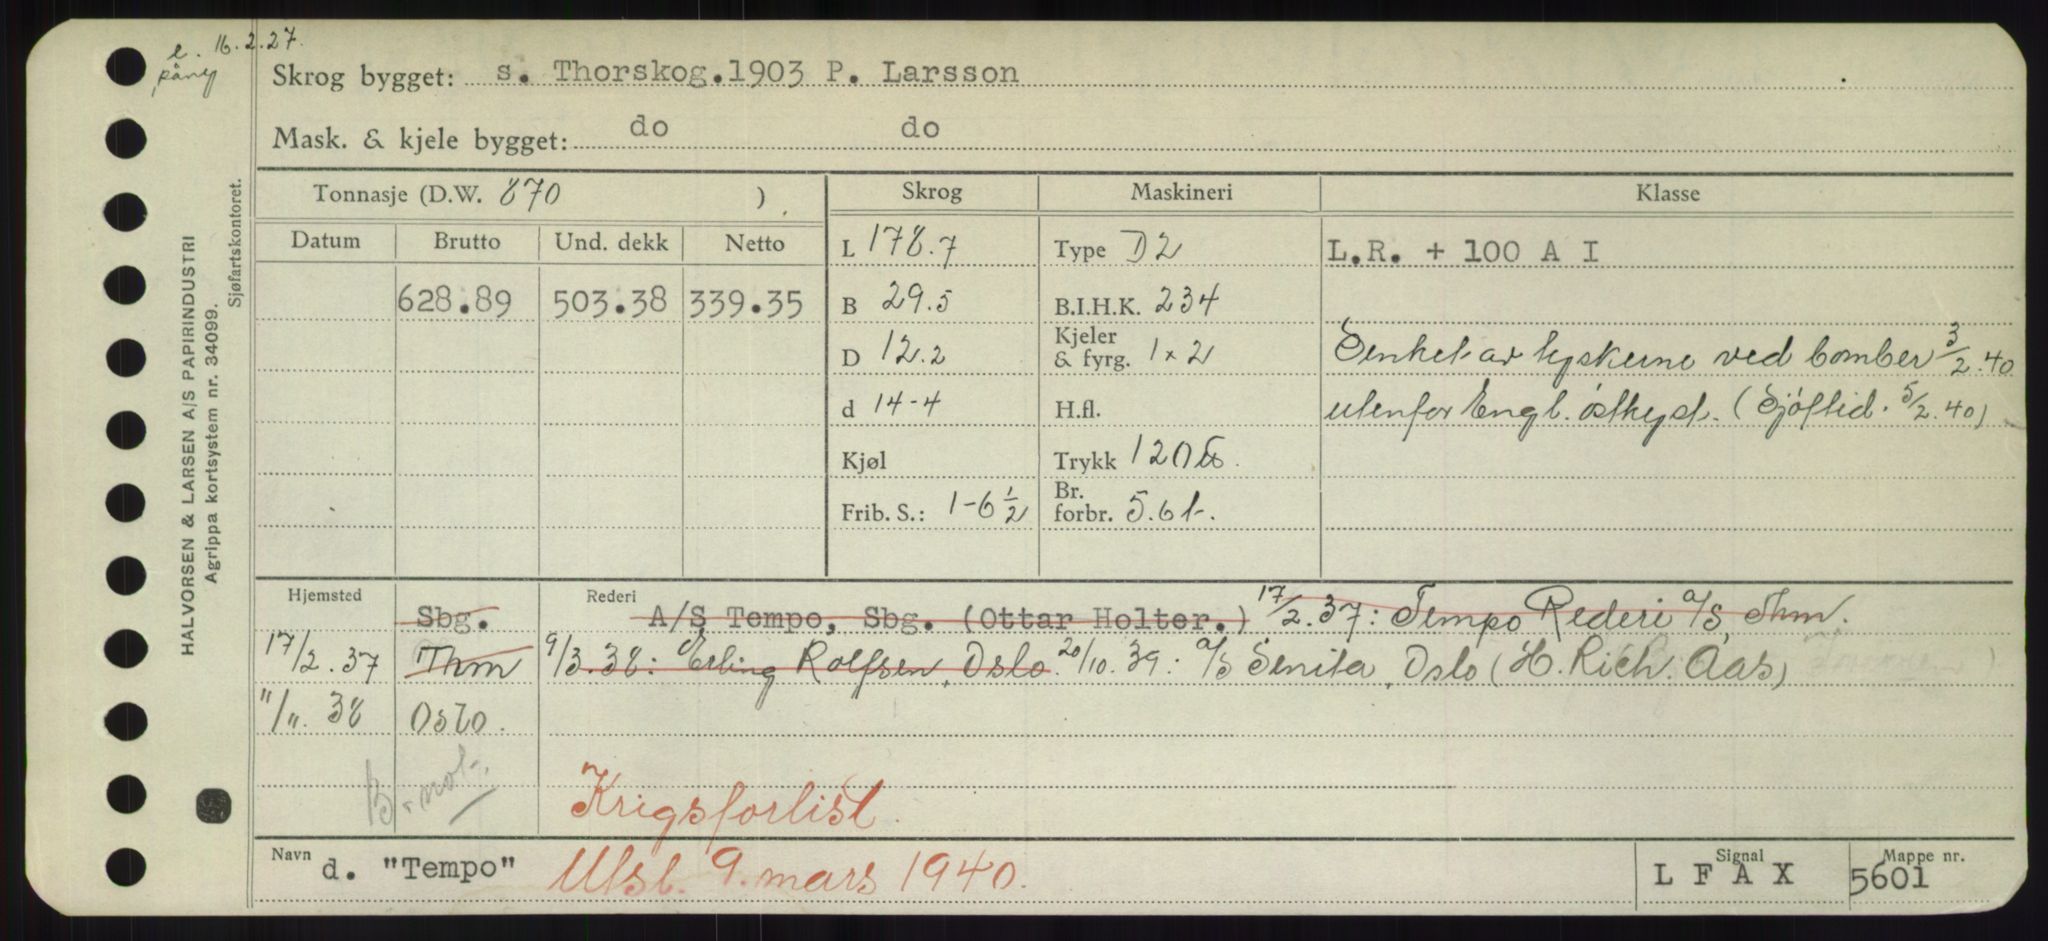 e. 16.2.27.
påny
Skrog bygget: s. Thorskog.1903 P. Larsson
Mask. & kjele bygget: do do
Tonnasje (D.W. 870 ) Skrog Maskineri Klasse
Datum Brutto Und. dekk Netto L 178.7 Type D2 L.R. + 100 A I
628.89 503.38 339.35 B 29.5 B.I.H.K. 234
D 12.2 Kjeler & fyrg. 1x2 Senket av tyskerne ved bomber 3/2.40
d 14-4 H.fl. utenfor Engl. østkyst. (Sjøftid. 5/2.40)
Kjøl Trykk 120 ℔.
Frib. S.: 1-6 1/2 Br. forbr. 5.6 t.
Hjemsted Sbg. Rederi A/S Tempo, Sbg. (Ottar Holter.) 17/2.37: Tempo Rederi A/S, Thm.
17/2.37 Thm 9/3.38: Erling Rolfsen, Oslo. 20/10.39: A/S Senita, Oslo (H. Rich. Aas)
"/". 38 Oslo.
B. not.
Krigsforlist.
Navn d. "Tempo" Utsl. 9. mars 1940. Signal L F A X Mappe nr. 5601
HALVORSEN & LARSEN A/S PAPIRINDUSTRI
Agrippa kortsystem nr. 34099.
Sjøfartskontoret.